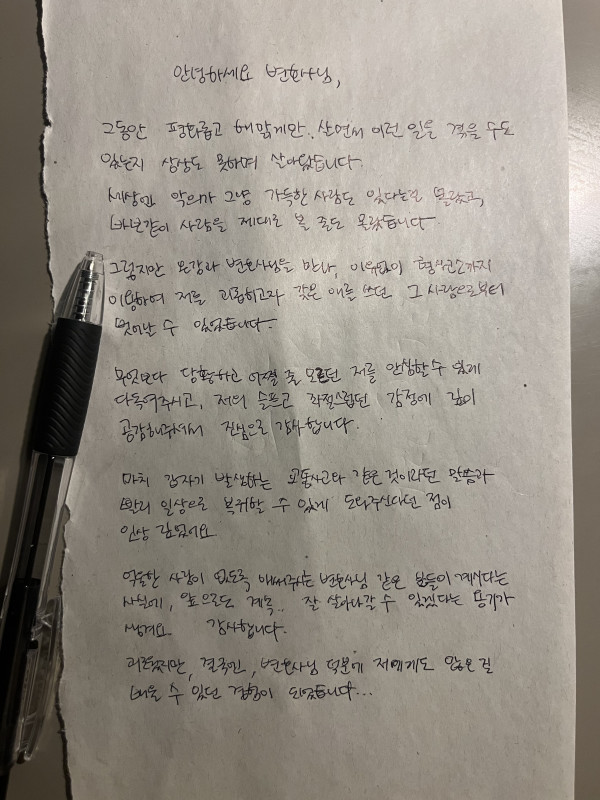 안녕하세요 변호사님,
그동안 평화롭고 해맑게만.. 살면서 이런 일을 겪을 수도
있는지 상상도 못하며 살아왔습니다.
세상엔 악의가 그냥 가득한 사람도 있다는걸 몰랐고,
바보같이 사람을 제대로 볼 줄도 몰랐습니다.
그렇지만 운좋게 변호사님을 만나, 이유없이 형사고소까지
이용하여 저를 괴롭히고자 갖은 애를 쓰던 그 사람으로부터
벗어날 수 있었습니다.
무엇보다 당황하고 어쩔 줄 모르던 저를 안심할 수 있게
다독여주시고, 저의 슬프고 좌절스럽던 감정에 깊이
공감해주셔서 진심으로 감사합니다.
마치 갑자기 발생하는 교통사고와 같은 것이라던 말씀과
빨리 일상으로 복귀할 수 있게 도와주신다던 점이
인상 깊었어요
억울한 사람이 없도록 애써주시는 변호사님 같은 분들이 계시다는
사실에, 앞으로도 계속.. 잘 살아나갈 수 있겠다는 용기가
생겨요 감사합니다.
괴로웠지만, 결국엔, 변호사님 덕분에 저에게도 많은 걸
배울 수 있던 경험이 되었습니다...